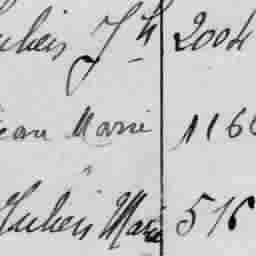 Julien Jh 2004
Jean Marie 1166
"
Julien Marie 516